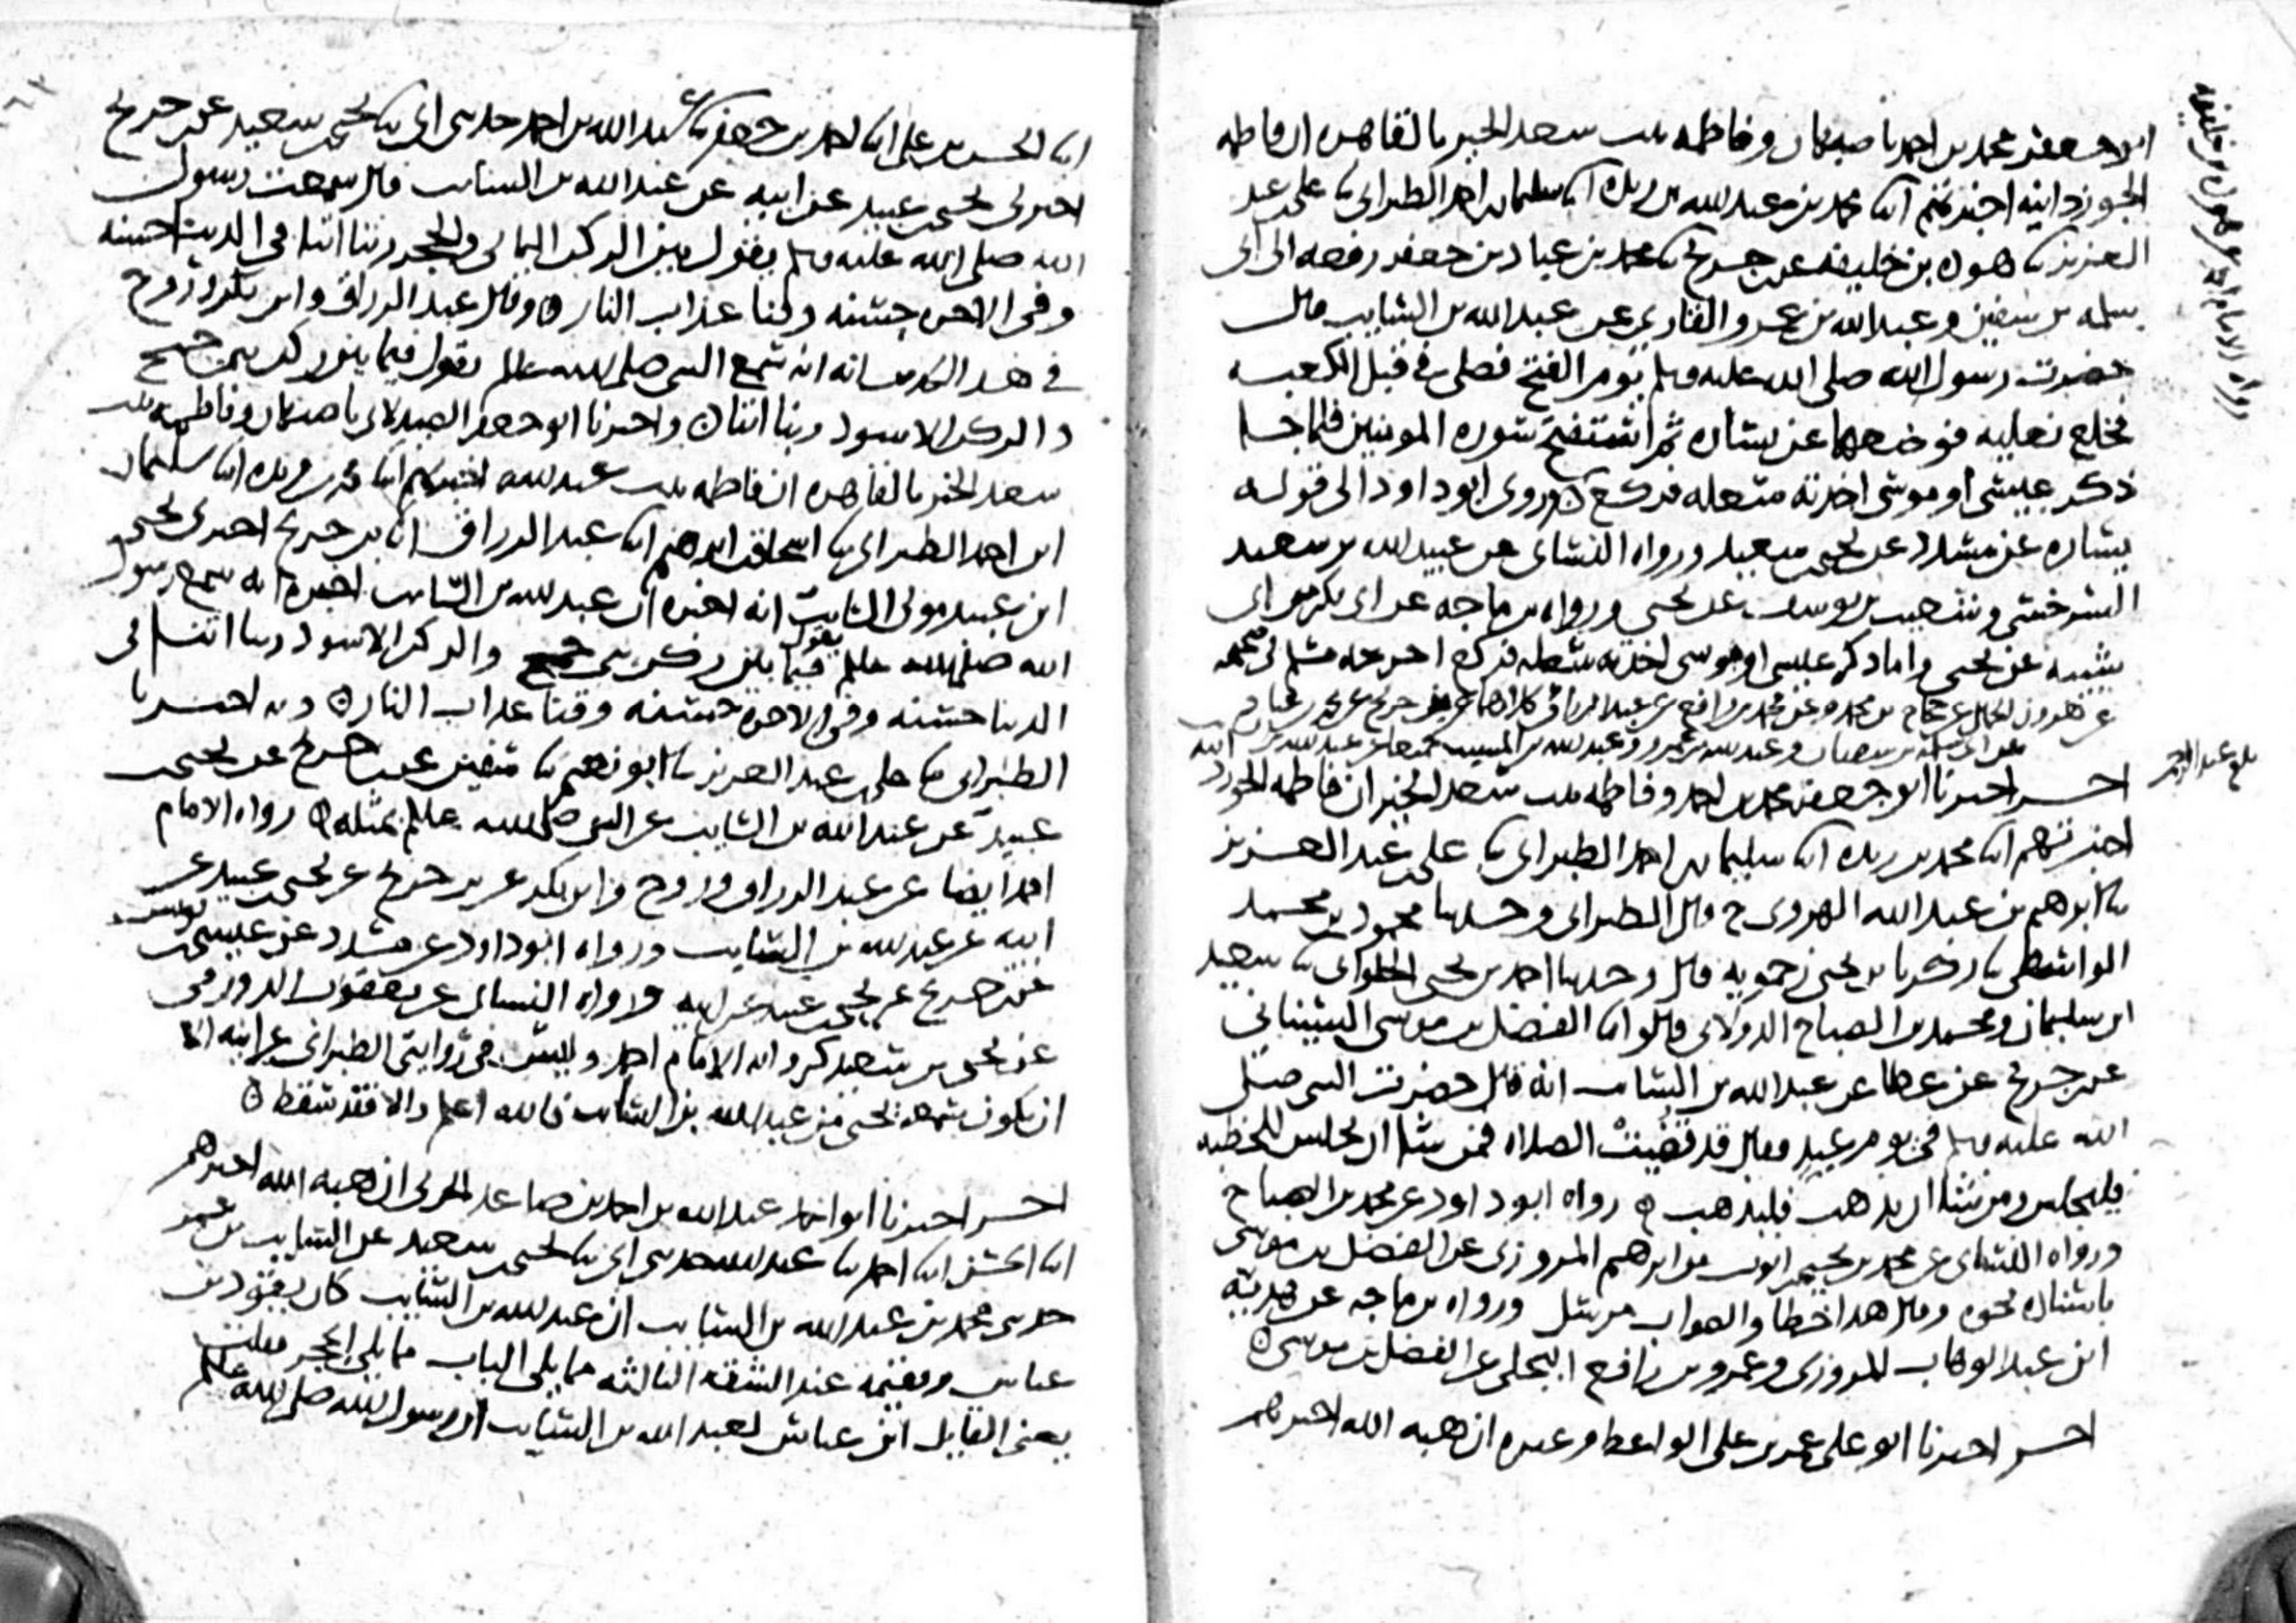 ابو جعفر محمد بن احمد باصبهان وفاطمه بنت سعد الخير بالقاهره ان فاطمه
الجوزدانيه اخبرتهم ابنا محمد بن عبد الله بن ريده ابنا سليمان بن احمد الطبراني نا علي بن عبد
العزيز نا هوذه بن خليفه عن ابن جريج نا محمد بن عباد بن جعفر رفعه الى ابي
سلمه بن سفين وعبد الله بن عمرو القاري عن عبد الله بن السايب قال
حضرت رسول الله صلى الله عليه وسلم يوم الفتح فصلى في قبل الكعبه
فخلع نعليه فوضعهما عن يساره ثم استفتح سوره المومنين فلما جا
ذكر عيسى او موسى اخذته سعله فركع وروى ابو داود الى قوله
يساره عن مسدد عن يحيى بن سعيد ورواه النسائي عن عبيد الله بن سعيد
السرخسي وشعيب بن يوسف عن يحيى ورواه بن ماجه عن ابي بكر بن ابي
شيبه عن يحيى واما ذكر عيسى او موسى اخذته سعله فركع اخرجه مسلم في صحيحه
عن هرون الحمال عن حجاج بن محمد وعن محمد بن رافع عن عبد الرزاق كلاهما عن ابن جريج عن محمد بن عباد
عن ابي سلمه بن سفيان وعبد الله بن عمرو وعبد الله بن المسيب العابدي عن عبد الله بن السايب
اخبرنا ابو جعفر محمد بن احمد وفاطمه بنت سعد الخير ان فاطمه الجوزدانيه
اخبرتهم ابنا محمد بن ريده ابنا سليمان بن احمد الطبراني نا علي بن عبد العزيز
نا ابرهيم بن عبد الله الهروي ح قال الطبراني وحدثنا محمود بن محمد
الواسطي نا زكريا بن يحيى زحمويه قال وحدثنا احمد بن يحيى الحلواني نا سعيد
ابن سليمان ومحمد بن الصباح الدولابي قالوا ابنا الفضل بن موسى السيناني
عن ابن جريج عن عطا عن عبد الله بن السايب انه قال حضرت النبي صلى
الله عليه وسلم في يوم عيد فقال قد قضيت الصلاه فمن شا ان يجلس للخطبه
فليجلس ومن شا ان يذهب فليذهب رواه ابو داود عن محمد بن الصباح
ورواه النسائي عن محمد بن يحيى بن ايوب بن ابرهيم المروزي عن الفضل بن موسى
باسناده نحوه وقال هذا خطا والصواب مرسل ورواه بن ماجه عن هديه
ابن عبد الوهاب المروزي وعمرو بن رافع البجلي عن الفضل بن موسى
اخبرنا ابو علي عمر بن علي الواعظ وغيره ان هبه الله اخبرهم
رواه الامام احمد عن هوذه بن خليفه
ابنا الحسن بن علي ابنا احمد بن جعفر نا عبد الله بن احمد حدثني ابي نا يحيى بن سعيد عن ابن جريج
اخبرني يحيى بن عبيد عن ابيه عن عبد الله بن السايب قال سمعت رسول
الله صلى الله عليه وسلم يقول بين الركن اليماني والحجر ربنا اتنا في الدنيا حسنه
وفي الاخره حسنه وقنا عذاب النار وقال عبد الرزاق وابن بكر وروح
في هذا الحديث انه سمع النبي صلى الله عليه وسلم يقول فيما بين ركن بني جمح
والركن الاسود ربنا اتنا واخبرنا ابو جعفر الصيدلاني باصبهان وفاطمه بنت
سعد الخير بالقاهره ان فاطمه بنت عبد الله اخبرتهم ابنا محمد بن ريده ابنا سليمان
ابن احمد الطبراني نا اسحاق بن ابرهيم ابنا عبد الرزاق ابنا بن جريج اخبرني يحيى
ابن عبيد مولى السايب انه اخبره ان عبد الله بن السايب اخبره انه سمع رسول
الله صلى الله عليه وسلم يقول فيما بين ركن بني جمح والركن الاسود ربنا اتنا في
الدنيا حسنه وفي الاخره حسنه وقنا عذاب النار وبه اخبرنا
الطبراني نا علي بن عبد العزيز نا ابو نعيم نا سفين عن ابن جريج عن يحيى بن
عبيد عن عبد الله بن السايب عن النبي صلى الله عليه وسلم بمثله رواه الامام
احمد ايضا عن عبد الرزاق وروح وابن بكر عن بن جريج عن يحيى بن عبيد عن
ابيه عن عبد الله بن السايب ورواه ابو داود عن مسدد عن عيسى بن يونس
عن ابن جريج عن يحيى بن عبيد عن ابيه ورواه النسائي عن يعقوب الدورقي
عن يحيى بن سعيد كروايه الامام احمد وليس في روايتي الطبراني عن ابيه الا
ان يكون سمعه يحيى من عبد الله بن السايب فالله اعلم والا فقد سقط
اخبرنا ابو احمد عبد الله بن احمد بن صاعد الحربي ان هبه الله اخبرهم
ابنا الحسن ابنا احمد نا عبد الله حدثني ابي نا يحيى بن سعيد عن السايب بن عمر
حدثني محمد بن عبد الله بن السايب ان عبد الله بن السايب كان يقود بن
عباس ويقيمه عند الشقه الثالثه مما يلي الباب مما يلي الحجر فقلت
يعني القايل ابن عباس لعبد الله بن السايب ان رسول الله صلى الله عليه وسلم